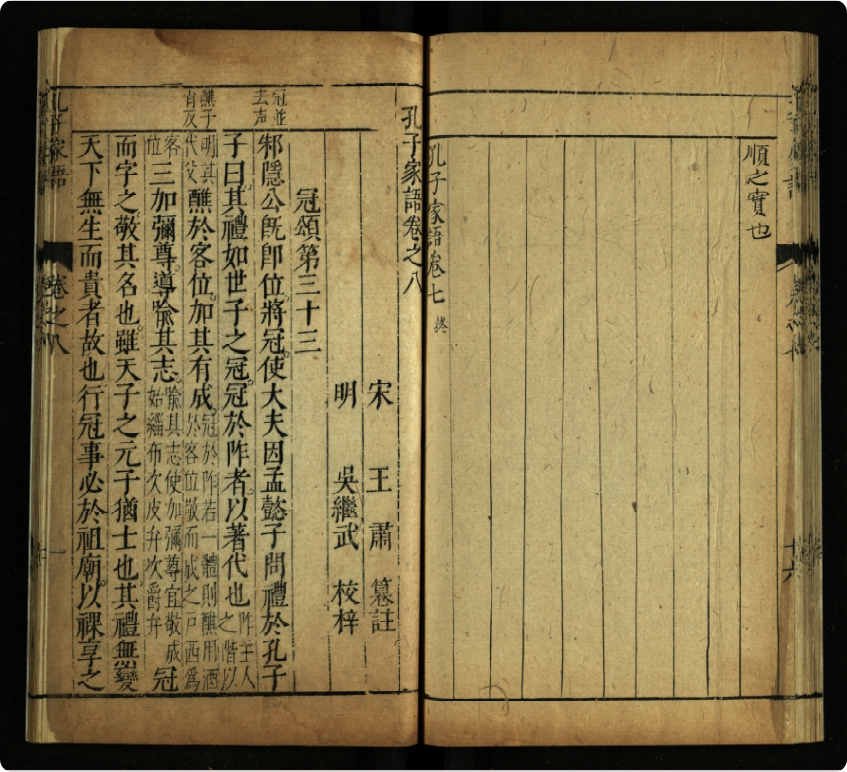 順之實也
孔子家語卷七 終
十六
孔子家語卷之八
宋 王 肅 纂註
明 吳繼武 校梓
冠頌第三十三
冠並去声
邾隱公既即位將冠使大夫因孟懿子問禮於孔子
子曰其禮如世子之冠冠於阼者以著代也阼主人之階以
醮子肖反
明其代父醮於客位加其有成冠於阼若一體則醮用酒於客位敬而成之戸西爲
客位三加彌尊導喻其志喻其志使加彌尊宜敬成始緇布次皮弁次爵弁冠
而字之敬其名也雖天子之元子猶士也其禮無變
天下無生而貴者故也行冠事必於祖廟以祼享之
孔子家語
卷之八
一